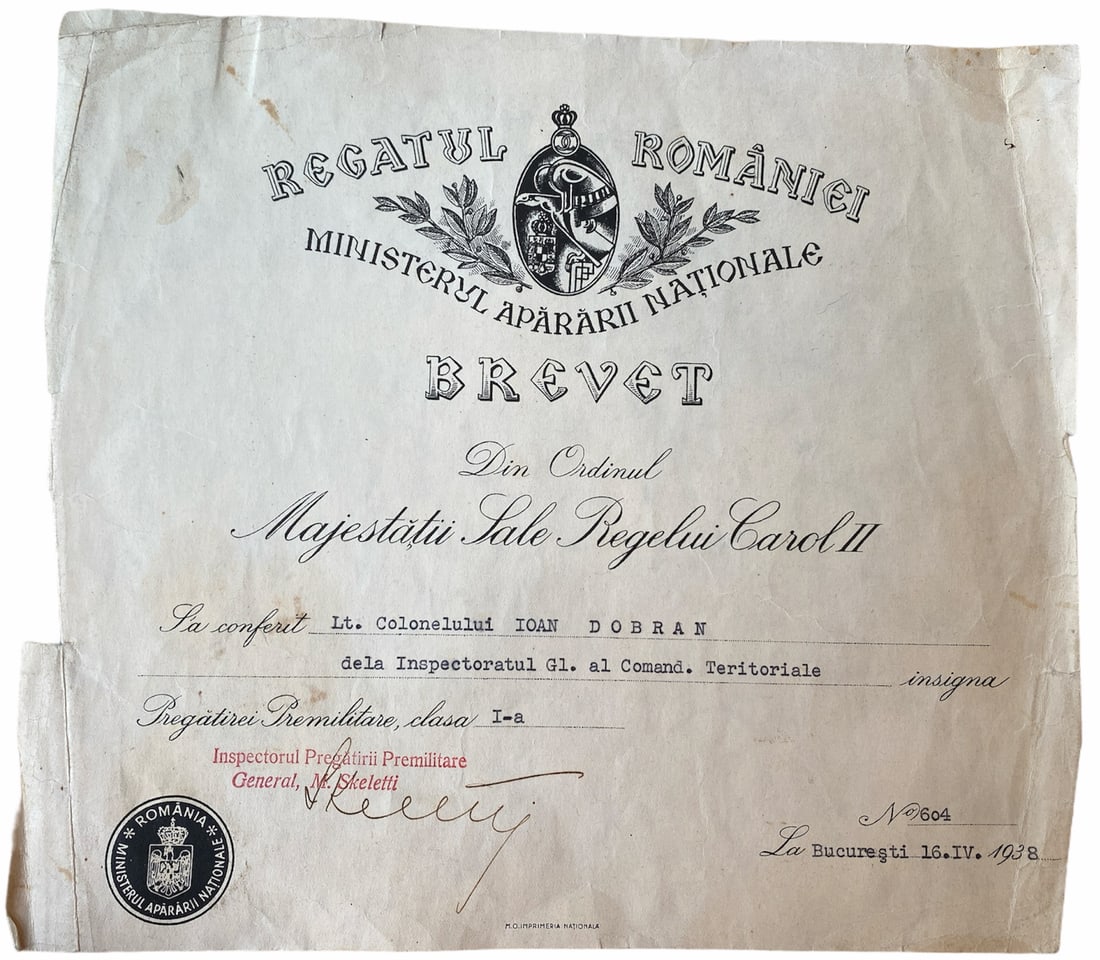 REGATUL ROMÂNIEI
MINISTERUL APĂRĂRII NAȚIONALE
BREVET
Din Ordinul
Majestății Sale Regelui Carol II
S'a conferit Lt. Colonelului IOAN DOBRAN
dela Inspectoratul Gl. al Comand. Teritoriale insigna
Pregătirei Premilitare, clasa I-a
Inspectorul Pregătirii Premilitare
General, M. Skeletti
Skeletti
No 604
La București 16.IV. 1938
ROMÂNIA
MINISTERUL APĂRĂRII NAȚIONALE
M.O. IMPRIMERIA NAȚIONALĂ